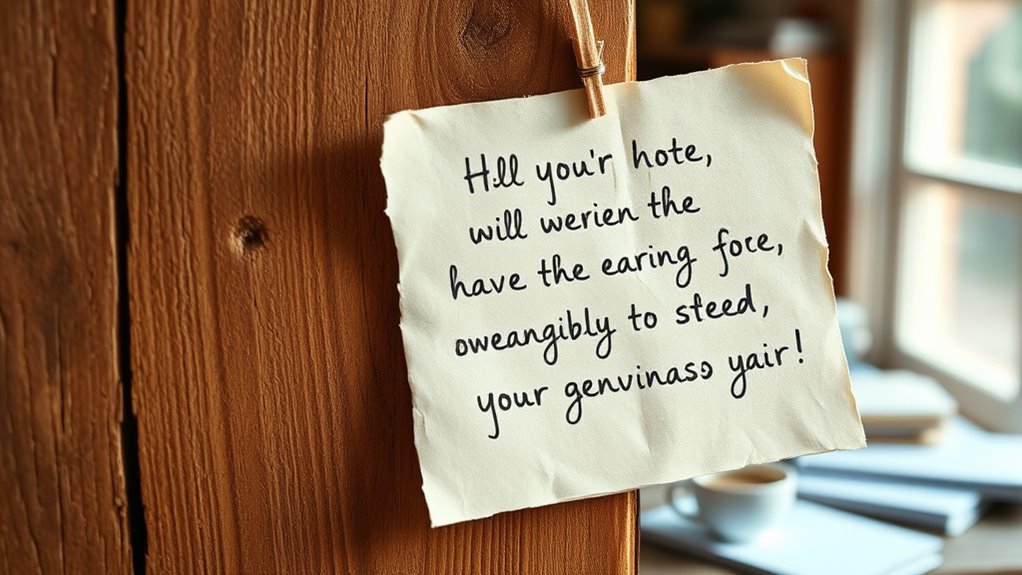 Hll you'r hote,
will werien the
have the earing foce,
oweangibly to steed,
your genvinass yair!